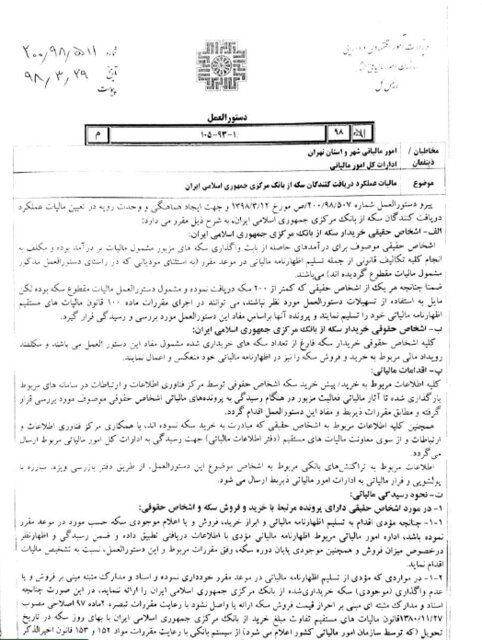 وزارت امور اقتصادی و دارایی
سازمان امور مالیاتی کشور
رئیس کل
شماره ۲۰۰/۹۸/۵۱۱
تاریخ ۹۸/۳/۲۹
پیوست
دستورالعمل
۱۰۵-۹۳-۱ ۹۸ م
مخاطبان / ذینفعان
امور مالیاتی شهر و استان تهران
ادارات کل امور مالیاتی
موضوع مالیات عملکرد دریافت کنندگان سکه از بانک مرکزی جمهوری اسلامی ایران
پیرو دستورالعمل شماره ۲۰۰/۹۸/۵۰۷/ص مورخ ۱۳۹۸/۳/۱۲ و جهت ایجاد هماهنگی و وحدت رویه در تعیین مالیات عملکرد
دریافت کنندگان سکه از بانک مرکزی جمهوری اسلامی ایران، به شرح ذیل مقرر می دارد:
الف- اشخاص حقیقی خریدار سکه از بانک مرکزی جمهوری اسلامی ایران:
اشخاص حقیقی موصوف برای درآمدهای حاصله از بابت واگذاری سکه های مزبور مشمول مالیات بر درآمد بوده و مکلف به
انجام کلیه تکالیف قانونی از جمله تسلیم اظهارنامه مالیاتی در موعد مقرر (به استثنای مودیانی که در راستای دستورالعمل مذکور
مشمول مالیات مقطوع گردیده اند) می‌باشند.
ضمنا چنانچه هر یک از اشخاص حقیقی که کمتر از ۲۰۰ سکه دریافت نموده و مشمول دستورالعمل مالیات مقطوع سکه بوده لیکن
مایل به استفاده از تسهیلات دستورالعمل مورد نظر نباشند، می توانند در اجرای مقررات ماده ۱۰۰ قانون مالیات های مستقیم
اظهارنامه مالیاتی خود را تسلیم نمایند و پرونده آنها براساس مفاد این دستورالعمل مورد بررسی و رسیدگی قرار گیرد.
ب- اشخاص حقوقی خریدار سکه از بانک مرکزی جمهوری اسلامی ایران:
کلیه اشخاص حقوقی خریدار سکه فارغ از تعداد سکه های خریداری شده مشمول مفاد این دستور العمل می باشند، و مکلفند
رویداد مالی مربوط به خرید و فروش سکه را نیز در اظهارنامه مالیاتی خود منعکس و اعمال نمایند.
پ- اقدامات مالیاتی:
کلیه اطلاعات مربوط به خرید/ پیش خرید سکه اشخاص حقوقی توسط مرکز فناوری اطلاعات و ارتباطات در سامانه های مربوط
بارگذاری شده تا آثار مالیاتی فعالیت مزبور در هنگام رسیدگی به پرونده‌های مالیاتی اشخاص حقوقی موصوف مورد بررسی قرار
گرفته و مطابق مقررات ذیربط و مفاد این دستورالعمل اقدام گردد.
همچنین کلیه اطلاعات مربوط به اشخاص حقیقی که مبادرت به خرید سکه نموده اند، با همکاری مرکز فناوری اطلاعات و
ارتباطات و از سوی معاونت مالیات های مستقیم (دفتر اطلاعات مالیاتی) جهت رسیدگی به ادارات کل امور مالیاتی مربوط ارسال
می گردد.
اطلاعات مربوط به تراکنش‌های بانکی مربوط به اشخاص موضوع این دستورالعمل، از طریق دفتر بازرسی ویژه، مبارزه با
پولشویی و فرار مالیاتی به ادارات امور مالیاتی ذیربط ارسال می شود.
ت- نحوه رسیدگی مالیاتی:
۱- در مورد اشخاص حقیقی دارای پرونده مرتبط با خرید و فروش سکه و اشخاص حقوقی:
۱-۱- چنانچه مودی اقدام به تسلیم اظهارنامه مالیاتی و ابراز خرید، فروش و یا اعلام موجودی سکه حسب مورد در موعد مقرر
نموده باشد، اداره امور مالیاتی مربوط اظهارنامه مالیاتی مؤدی با اطلاعات دریافتی تطبیق داده و ضمن رسیدگی و اظهارنظر
درخصوص میزان فروش و همچنین موجودی پایان دوره سکه، وفق مقررات مربوط و این دستورالعمل، نسبت به تشخیص مالیات
اقدام نماید.
۱-۲- در مواردی که مؤدی از تسلیم اظهارنامه مالیاتی در موعد مقرر خودداری نموده و اسناد و مدارک مثبته مبنی بر فروش و یا
عدم واگذاری (موجودی) سکه خریداری‌شده از بانک مرکزی جمهوری اسلامی ایران را ارائه ننمایند، در این صورت چنانچه
اسناد و مدارک مثبته ای مبنی بر احراز قیمت فروش سکه ارائه یا واصل نشود با رعایت مقررات تبصره ۲ ماده ۹۷ اصلاحی مصوب
۱۳۸۰/۱۱/۲۷ قانون مالیات‌های مستقیم درآمد مشمول مالیات عملکرد
تحویل (که توسط سازمان امور مالیاتی کشور اعلام می شود) از سیستم بانکی با رعایت مقررات مواد ۱۵۲ و ۱۵۳ قانون اخیرالذکر